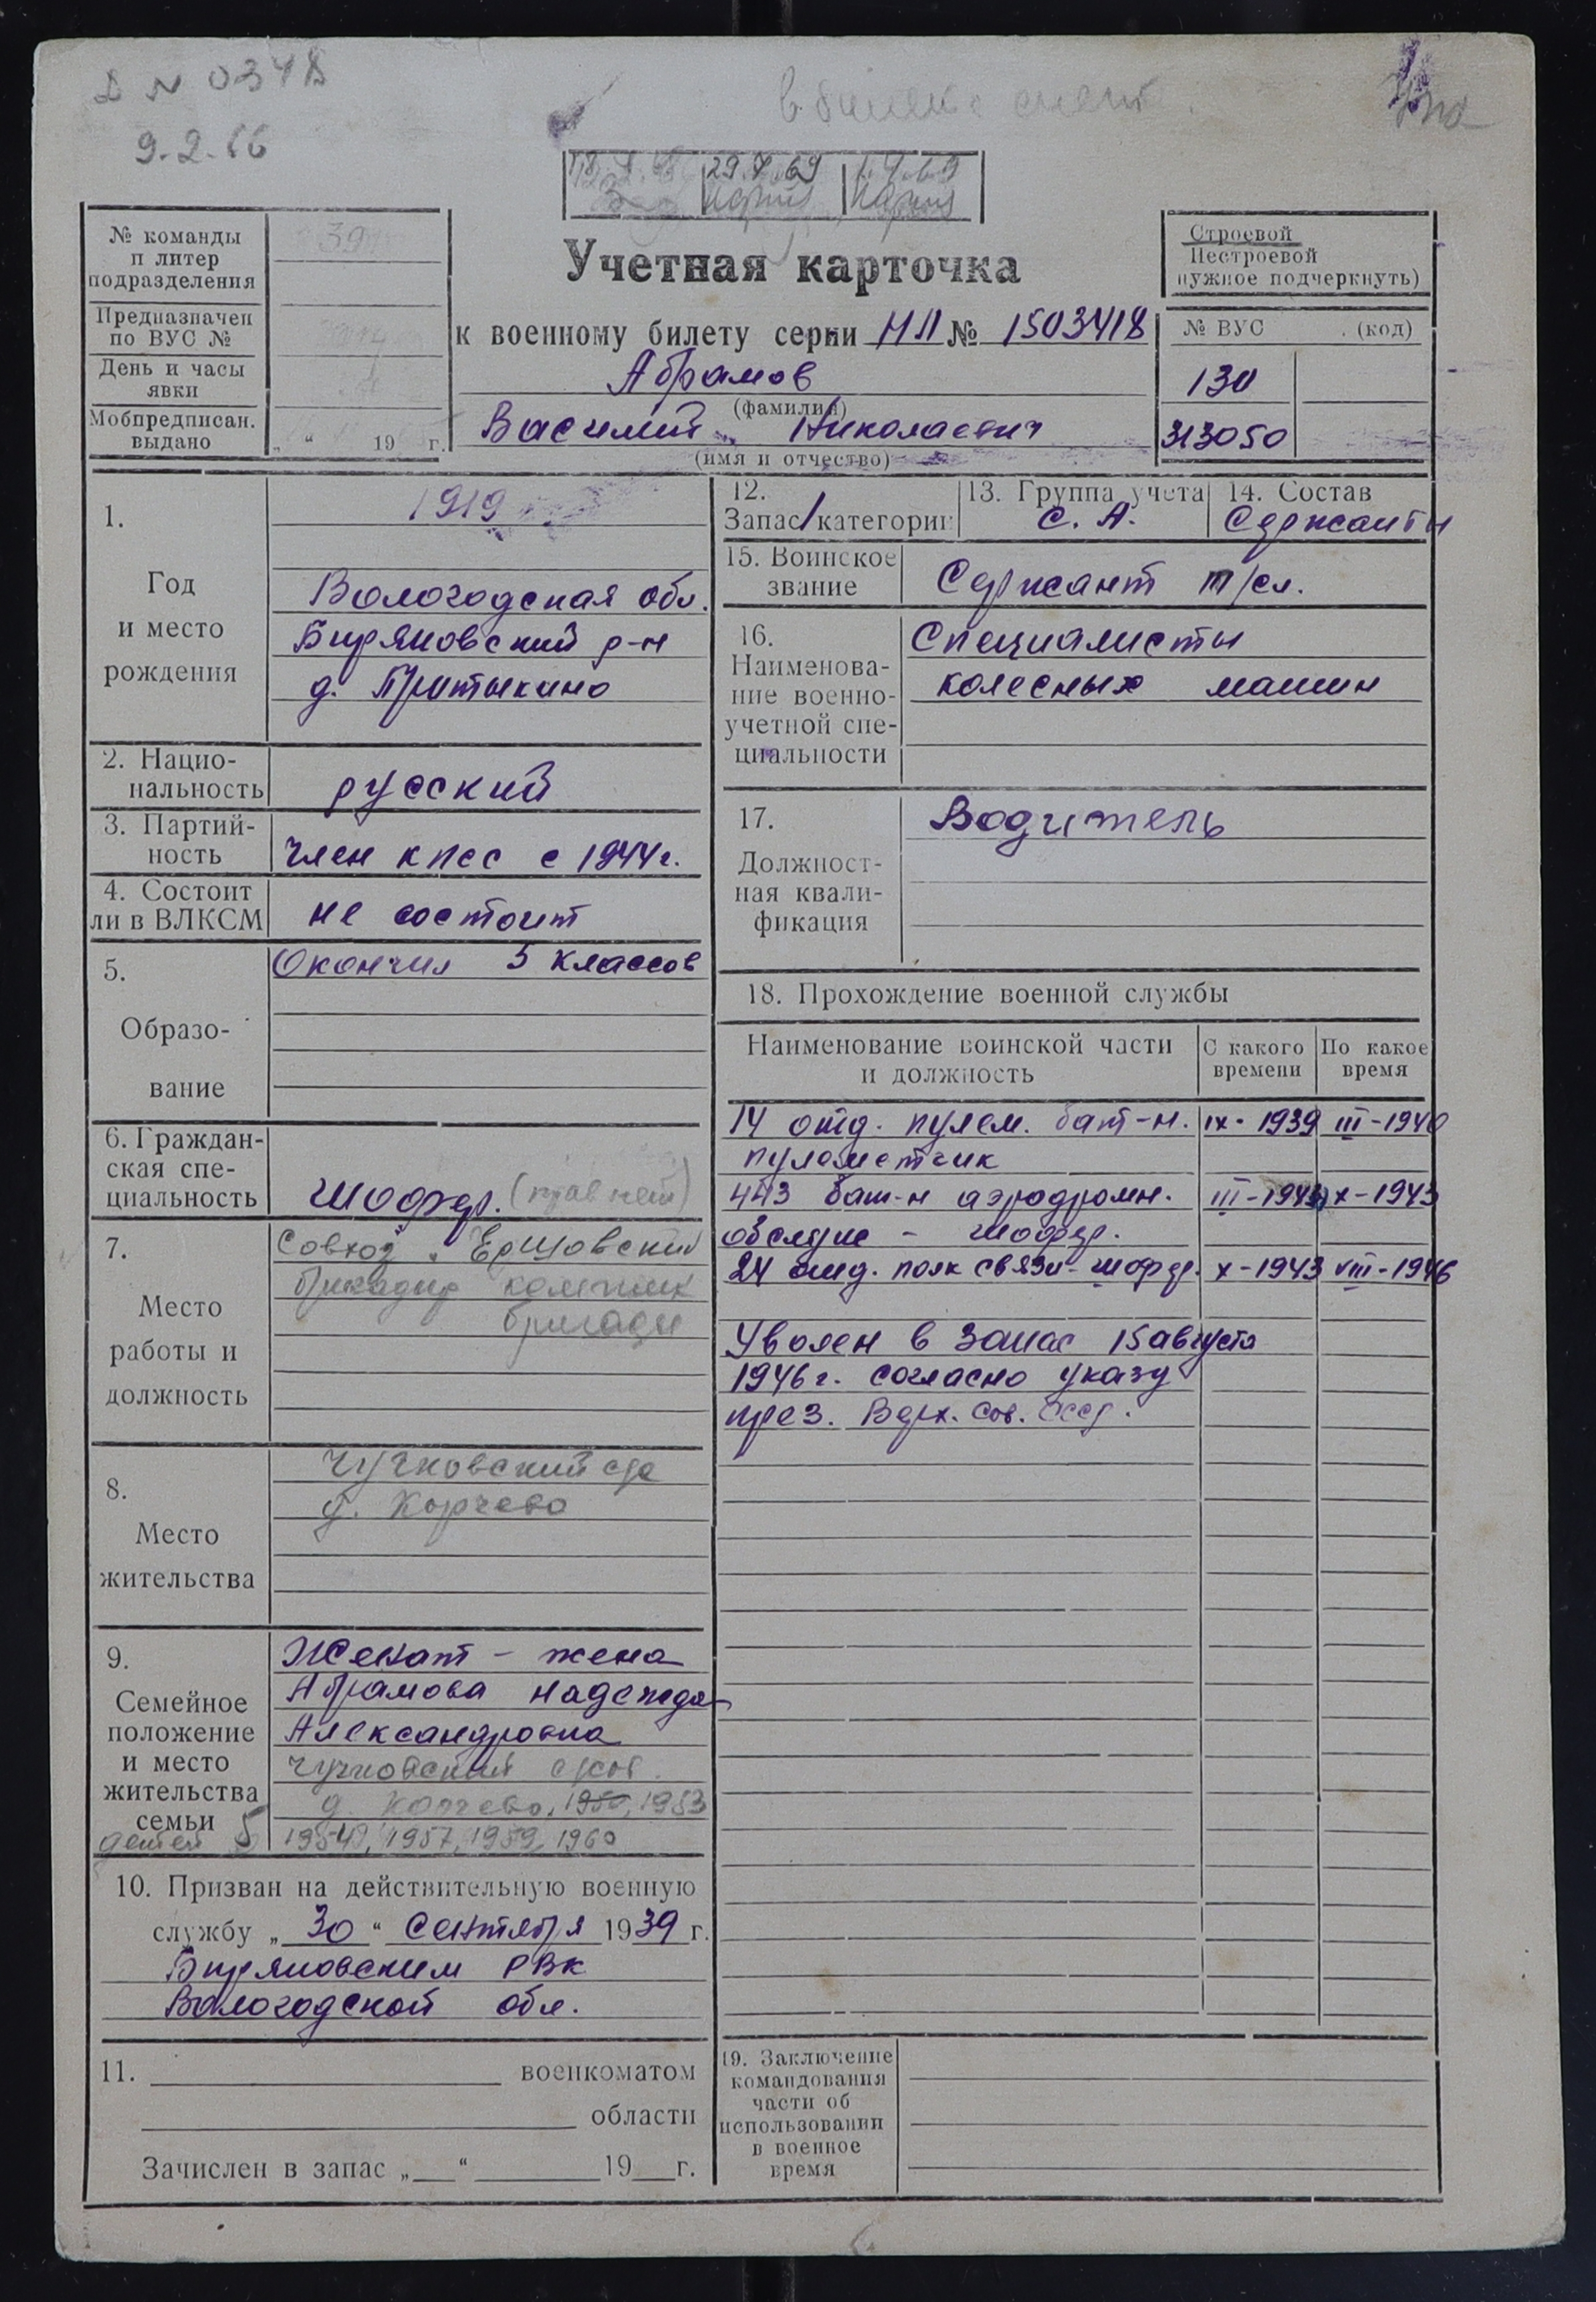 9.2.66
29.7.69
№ команды
п литер
подразделения
39
Предназначен
по ВУС №
День и часы
явки
Мобпредписан.
выдано
„ “ 19 г.
Учетная карточка
к военному билету серии НЛ № 1503418
Абрамов
(фамилия)
Василий Николаевич
(имя и отчество)
Строевой
Нестроевой
нужное подчеркнуть)
№ ВУС (код)
130
313050
1.
Год
и место
рождения
1919
Вологодская обл.
Биряковский р-н
д. Притыкино
2. Нацио-
нальность
русский
3. Партий-
ность
член кпсс с 1944г.
4. Состоит
ли в ВЛКСМ
не состоит
5.
Образо-
вание
Окончил 5 классов
6. Граждан-
ская спе-
циальность
Шофер. (прав нет)
7.
Место
работы и
должность
Совхоз Ершовский
бригадир
бригады
8.
Место
жительства
Чучковский с/с
д. Корчево
9.
Семейное
положение
и место
жительства
семьи
детей 5
Женат - жена
Абрамова Надежда
Александровна
Чучковский с/сов.
д. Корчево, 1950, 1953
1954, 1957, 1959, 1960
10. Призван на действительную военную
службу „ 30 “ Сентября 1939 г.
Биряковским РВК
Вологодской обл.
11. военкоматом
области
Зачислен в запас „ “ 19 г.
12.
Запас 1 категории
13. Группа учета
С. А.
14. Состав
Сержанты
15. Воинское
звание
Сержант т/сл.
16.
Наименова-
ние военно-
учетной спе-
циальности
Специалисты
колесных машин
17.
Должност-
ная квали-
фикация
Водитель
18. Прохождение военной службы
Наименование воинской части
и должность
С какого
времени
По какое
время
14 отд. пулем. бат-н. IX-1939 III-1940
пулеметчик
443 бат-н аэродромн. III-1942 X-1943
обслуж - шофер.
24 отд. полк связи - шофер. X-1943 VIII-1946
Уволен в запас 15 августа
1946г. согласно указу
през. Верх. Сов. СССР.
19. Заключение
командования
части об
использовании
в военное
время